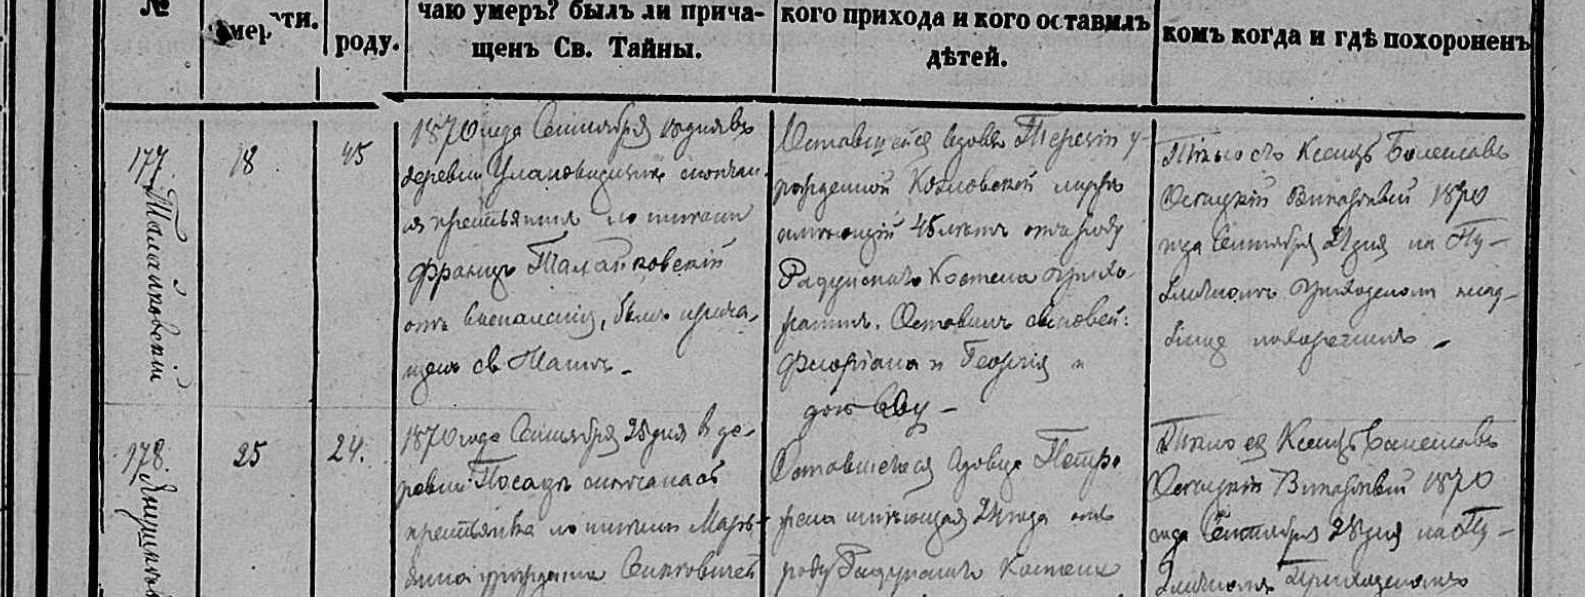 №
смерти.
роду.
чаю умеръ? былъ ли прича-
щенъ Св. Тайны.
кого прихода и кого оставилъ
дѣтей.
комъ когда и гдѣ похороненъ
177
Талайковскій
18
45
1870 года Сентября 18 дня въ
деревни скончал-
ся крестьянинъ по имени
Францъ Талайковскій
отъ былъ прича-
щенъ св Таинъ.
Оставшейся вдовы Терезіи у-
рожденной Козловской
имѣющій 45 лѣтъ отъ роду
Радунскаго Костела прихо-
жанинъ. Оставилъ сыновей:
Флоріана и Георгія и
дочь Еву
Тѣло его Ксендзъ Болеславъ
Викарный 1870
года Сентября 21 дня на Пу-
приходскомъ клад-
бище похоронилъ.
178.
25
24.
1870 года Сентября 25 дня в де-
ревни Посадъ скончалась
крестьянка по имени Марь-
яна урожденна
Оставшейся вдовце Петро
имѣющая 24 года отъ
роду Радунскаго Костела
Тѣло ея Ксендзъ Болеславъ
Викарный 1870
года Сентября 28 дня на Пу-
Приходскомъ